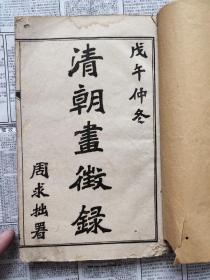 戊午仲冬
清朝畫徵錄
周求拙署